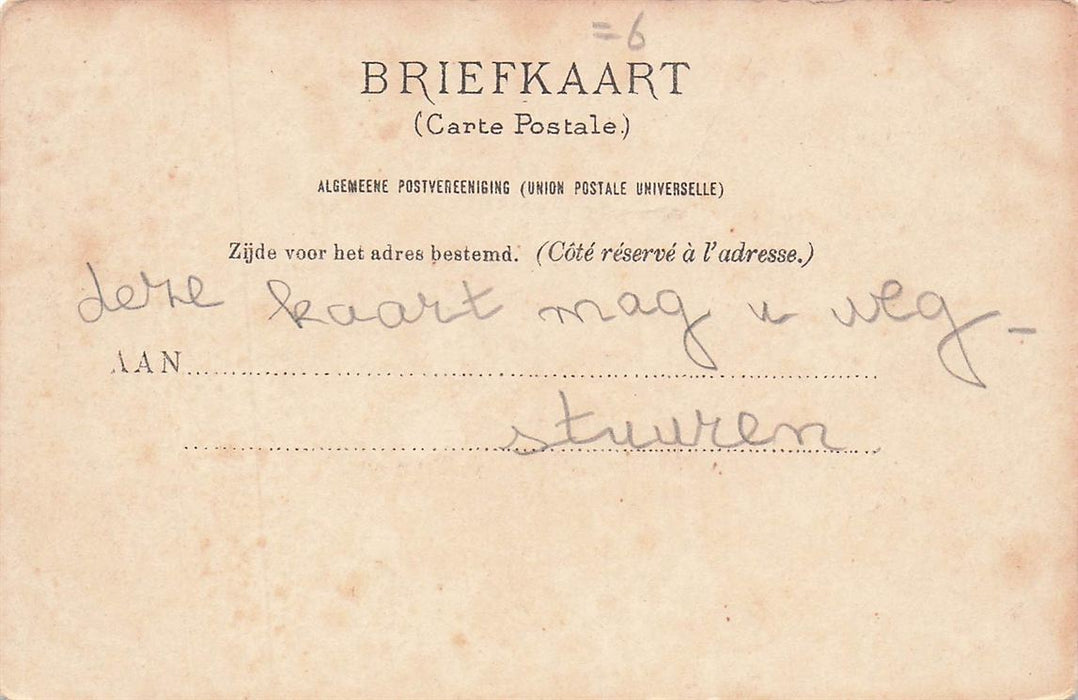 =6
BRIEFKAART
(Carte Postale.)
ALGEMEENE POSTVEREENIGING (UNION POSTALE UNIVERSELLE)
Zijde voor het adres bestemd. (Côté réservé à l'adresse.)
deze kaart mag u weg-
AAN
stuuren